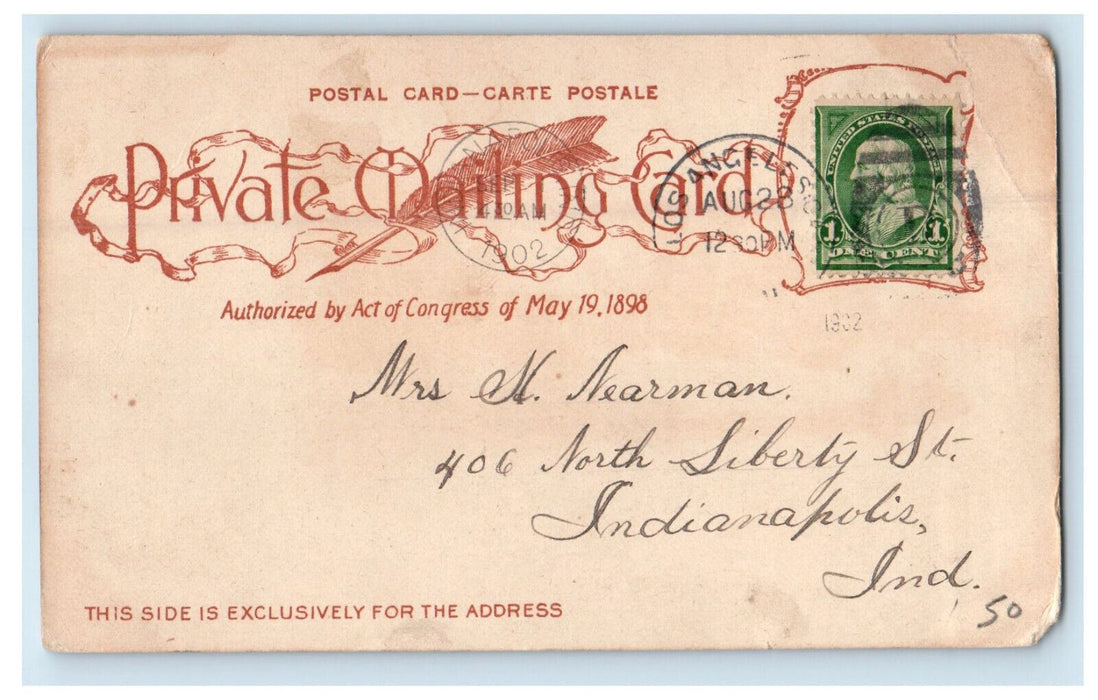 POSTAL CARD—CARTE POSTALE
Private Mailing Card
Authorized by Act of Congress of May 19, 1898
UNITED STATES
1 1
ONE CENT
LOS ANGELES
AUG 28
12 30PM
1902
AM
1902
Mrs H. Nearman.
406 North Liberty St.
Indianapolis,
Ind.
THIS SIDE IS EXCLUSIVELY FOR THE ADDRESS
50